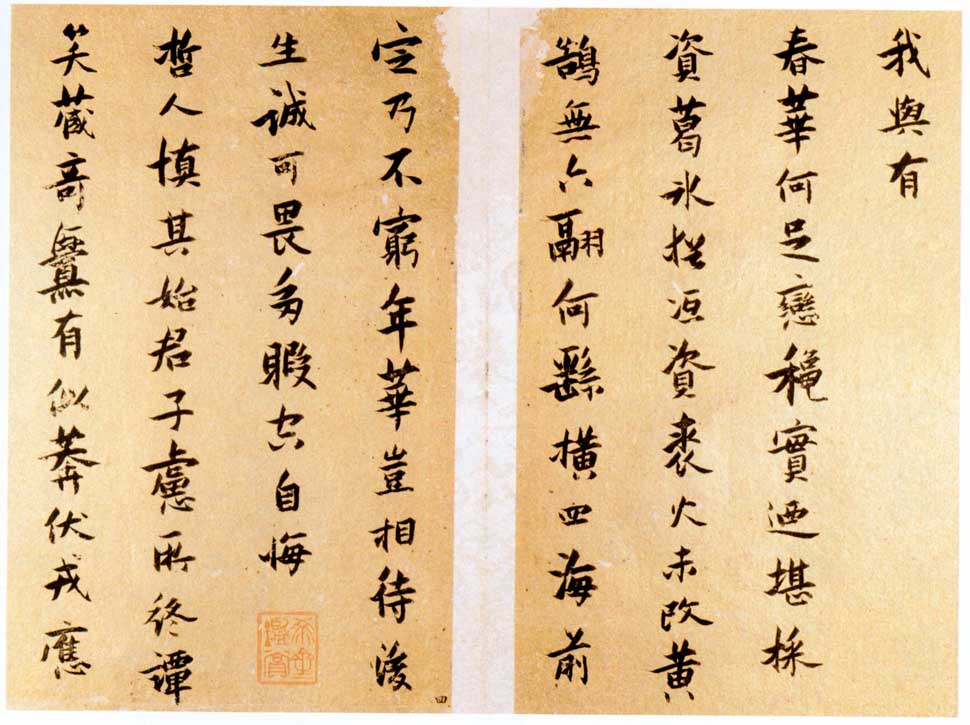 我與有
春華何足戀穐實迺堪採
資葛氷沍資裘火未改黄
鵠無六翮何繇橫四海前
定乃不窮年華豈相待後
生誠可畏多暇空自悔
哲人慎其始君子慮所終譚
笑藏奇釁有似莽伏戎應
四